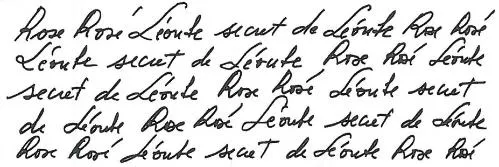 Rose Rosé Léonte secret de Léonte Rose Rosé
Léonte secret de Léonte Rose Rosé Léonte
secret de Léonte Rose Rosé Léonte secret
de Léonte Rose Rosé Léonte secret de Léonte
Rose Rosé Léonte secret de Léonte Rose Rosé